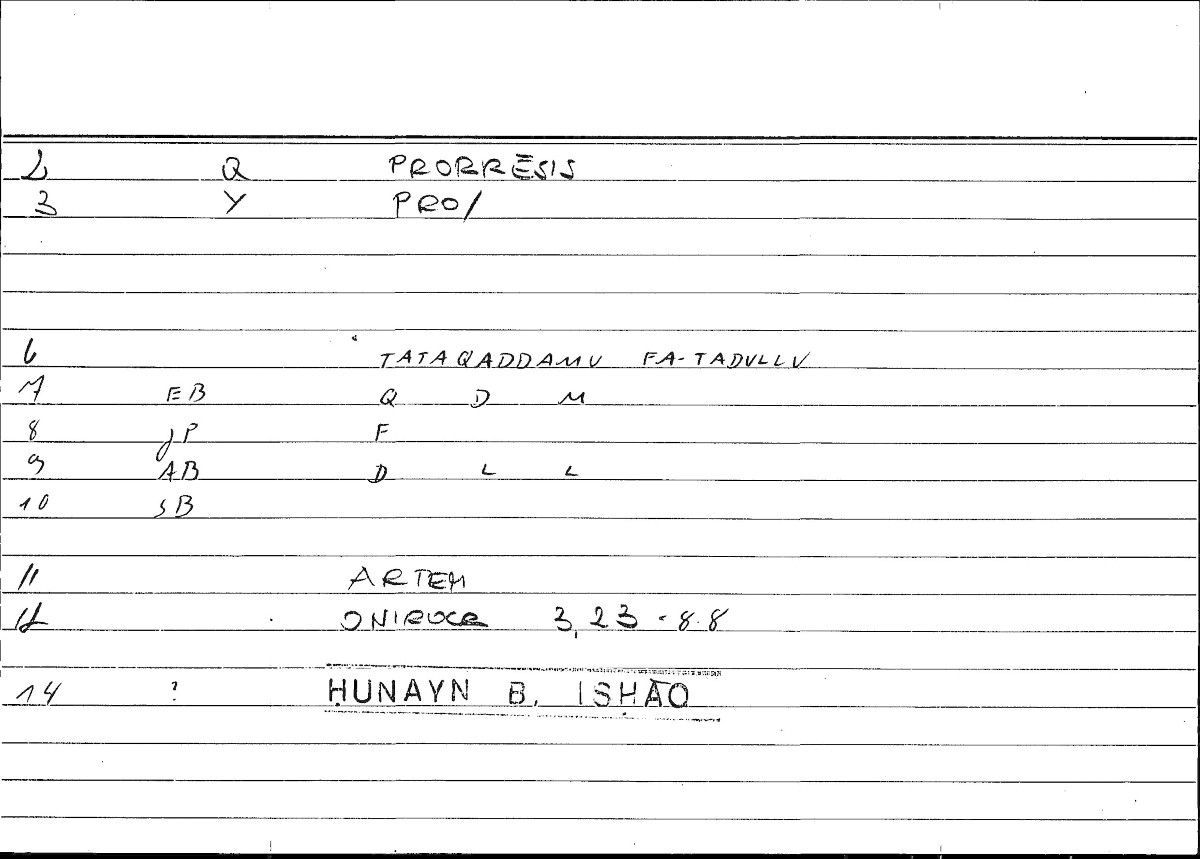 2 Q PRORRĒSIS
3 Y PRO/
6 TATAQADDAMU FA-TADULLU
7 EB Q D M
8 JP F
9 AB D L L
10 SB
11 ARTEM
12 ONIROCR 3,23-8.8
14 ? ḤUNAYN B. ISḤĀQ